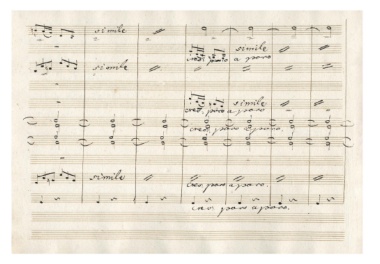 simile
simile
cres. poco a poco
simile
simile
cres. poco a poco
cres. poco a poco.
simile
cres. poco a poco.
cres. poco a poco.